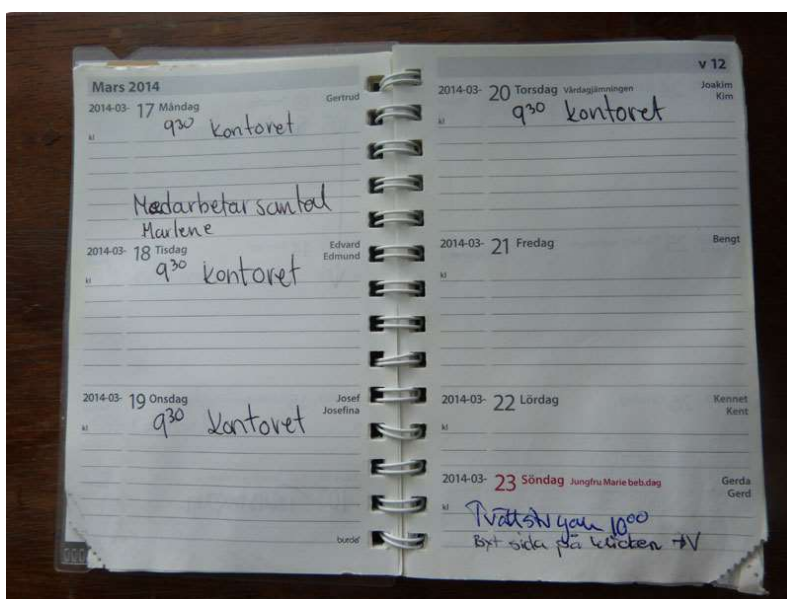 Mars 2014
2014-03- 17 Måndag Gertrud
kl 9³⁰ kontoret
Medarbetarsamtal
Marlene
2014-03- 18 Tisdag Edvard
Edmund
kl 9³⁰ kontoret
2014-03- 19 Onsdag Josef
Josefina
kl 9³⁰ kontoret
burde
v 12
2014-03- 20 Torsdag Vårdagjämningen Joakim
Kim
kl 9³⁰ kontoret
2014-03- 21 Fredag Bengt
kl
2014-03- 22 Lördag Kennet
Kent
kl
2014-03- 23 Söndag Jungfru Marie beb.dag Gerda
Gerd
kl Tvättstugan 10⁰⁰
Byt sida på klicken →V